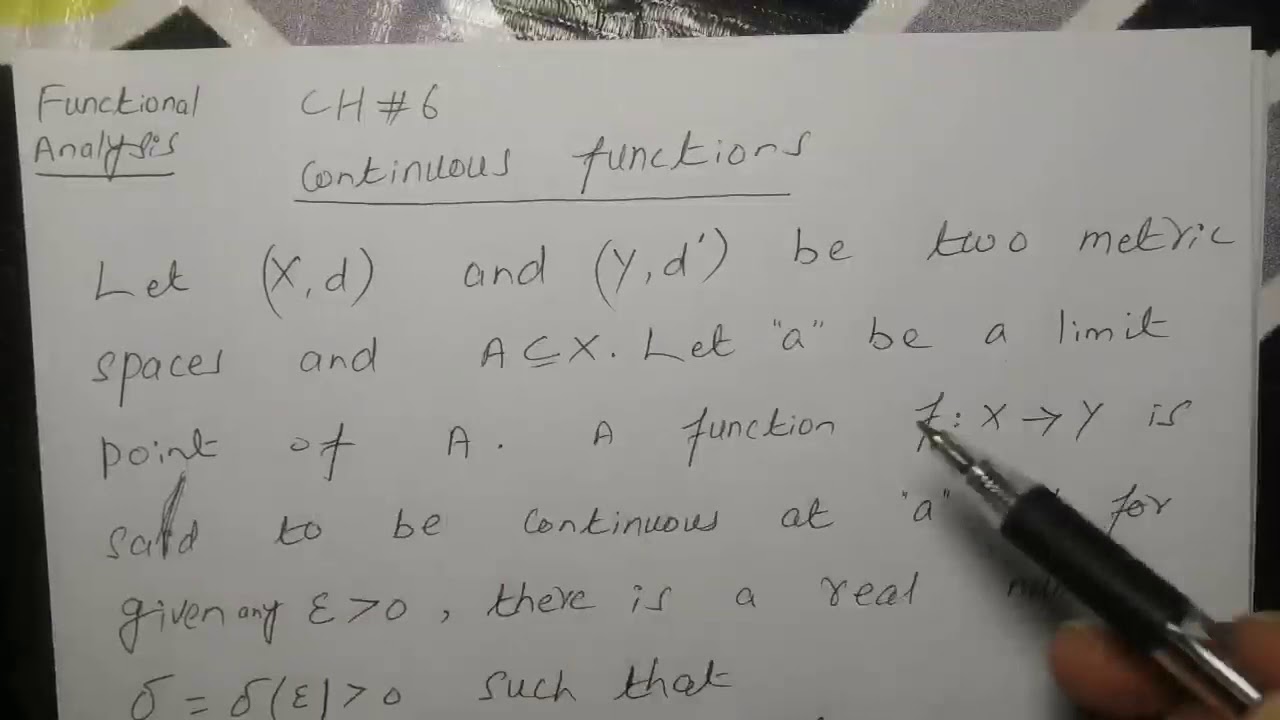 Functional
Analysis
CH # 6
Continuous functions
Let (X, d) and (Y, d') be two metric
spaces and A ⊆ X. Let "a" be a limit
point of A. A function f: X → Y is
said to be continuous at "a" for
given any ε > 0, there is a real
δ = δ(ε) > 0 such that